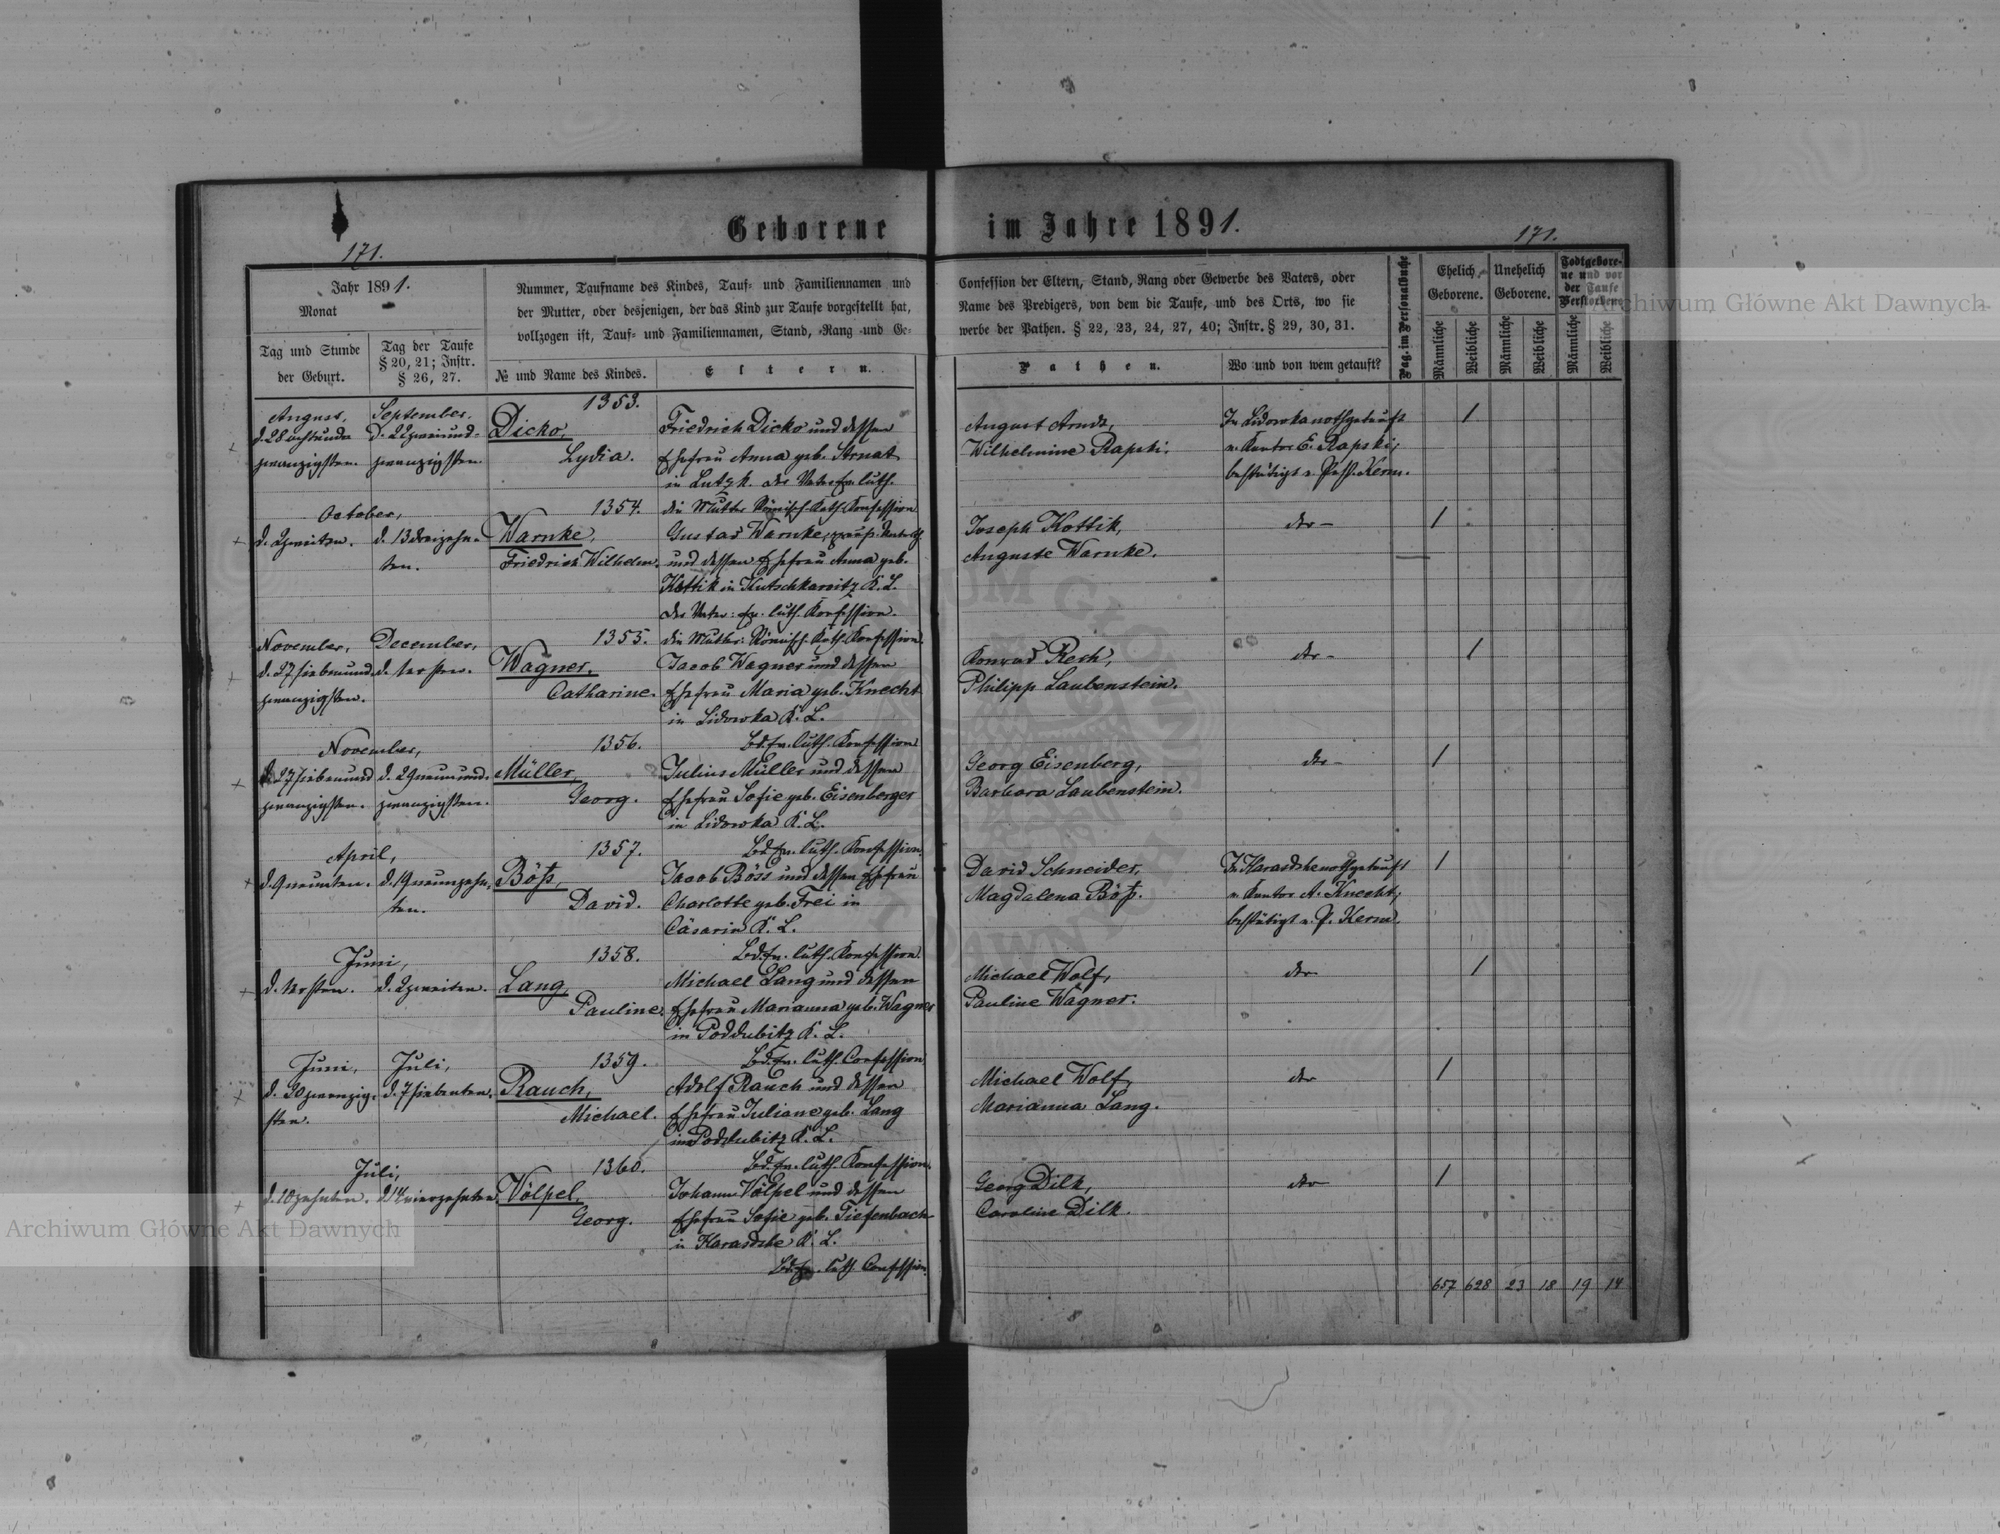 Geborene im Jahre 1891.
171.
171.
Jahr 1891.
Monat
Tag und Stunde
der Geburt.
Tag der Taufe
§ 20, 21; Instr.
§ 26, 27.
Nummer, Taufname des Kindes, Tauf- und Familiennamen und
der Mutter, oder desjenigen, der das Kind zur Taufe vorgestellt hat,
vollzogen ist, Tauf- und Familiennamen, Stand, Rang und Ge-
№ und Name des Kindes.
Eltern.
Confession der Eltern, Stand, Rang oder Gewerbe des Vaters, oder
Name des Predigers, von dem die Taufe, und des Orts, wo sie
werbe der Pathen. § 22, 23, 24, 27, 40; Instr. § 29, 30, 31.
Pathen.
Wo und von wem getauft?
Pag. im Personalbuche
Ehelich
Geborene.
Unehelich
Geborene.
Todtgebore-
ne und vor
der Taufe
Verstorbene
Männliche
Weibliche
Männliche
Weibliche
Männliche
Weibliche
August,
d. 28 achtundzwanzigsten.
September.
d. 22 zweiund-
zwanzigsten.
1353.
Dicko,
Lydia.
Friedrich Dicko und dessen
Ehefrau Anna geb. Arnat
in Lutzk. der Vater ev. luth.
die Mutter Römisch-Kath. Konfession
August Arndt,
Wilhelmine Rapski.
In Lidowka nothgetauft
v. Kantor E. Rapski;
bestätigt v. Past. Kerm.
1
October,
d. 2 zweiten.
d. 13 dreizehn-
ten.
1354.
Warnke,
Friedrich Wilhelm.
Gustav Warnke, preuß. Unterth.
und dessen Ehefrau Anna geb.
Kottik in Kutschkarowitz K. L.
der Vater: ev. luth. Konfession.
die Mutter: Römisch-Kath. Konfession.
Joseph Kottik,
Auguste Warnke.
dto
1
November,
d. 27 siebenund
zwanzigsten.
December,
d. 1 ersten.
1355.
Wagner,
Catharine.
Jacob Wagner und dessen
Ehefrau Maria geb. Knecht
in Lidowka K. L.
Bd. ev. luth. Konfession
Konrad Resch,
Philipp Laubenstein.
dto
1
November,
d. 27 siebenund
zwanzigsten.
d. 29 neunund-
zwanzigsten.
1356.
Müller,
Georg.
Julius Müller und dessen
Ehefrau Sofie geb. Eisenberger
in Lidowka K. L.
Bd. ev. luth. Konfession.
Georg Eisenberg,
Barbara Laubenstein.
dto
1
April,
d. 9 neunten.
d. 19 neunzehn-
ten.
1357.
Böß,
David.
Jacob Böss und dessen Ehefrau
Charlotte geb. Frei in
Cäsarin K. L.
Bd. ev. luth. Konfession.
David Schneider,
Magdalena Böß.
In Karasdshe nothgetauft
v. Kantor A. Knecht;
bestätigt v. P. Kerm.
1
Juni,
d. 1 ersten.
d. 2 zweiten.
1358.
Lang,
Pauline.
Michael Lang und dessen
Ehefrau Marianna geb. Wagner
in Poddubitz K. L.
Bd. ev. luth. Confession
Michael Wolf,
Pauline Wagner.
dto
1
Juni,
d. 20 zwanzig-
sten.
Juli,
d. 7 siebenten.
1359.
Rauch,
Michael.
Adolf Rauch und dessen
Ehefrau Juliane geb. Lang
in Poddubitz K. L.
Bd. ev. luth. Konfession.
Michael Wolf,
Marianna Lang.
dto
1
Juli,
d. 10 zehnten.
d. 14 vierzehnten.
1360.
Völpel,
Georg.
Johann Völpel und dessen
Ehefrau Sofie geb. Tiefenbach
in Karasdshe K. L.
Bd. ev. luth. Confession.
Georg Dilk,
Caroline Dilk.
dto
1
657 628 23 18 19 14
Archiwum Główne Akt Dawnych
Archiwum Główne Akt Dawnych